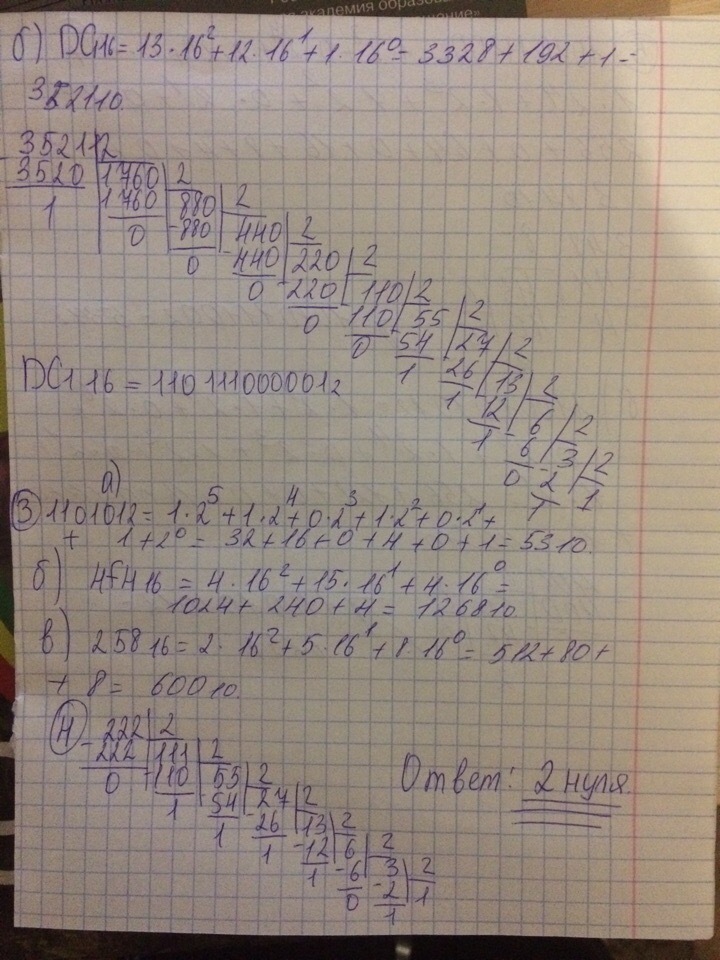 академия образова
б) DC1 16 = 13 · 16² + 12 · 16¹ + 1 · 16⁰ = 3328 + 192 + 1 =
3521 10.
3521 2
3520 1760 2
1 1760 880 2
0 -880 440 2
0 -440 220 2
0 220 110 2
0 110 55 2
0 54 27 2
1 26 13 2
1 12 6 2
1 6 3 2
0 2 1
1
DC1 16 = 110111000001 2
а)
3 110101 2 = 1 · 2⁵ + 1 · 2⁴ + 0 · 2³ + 1 · 2² + 0 · 2¹ +
+ 1 + 2⁰ = 32 + 16 + 0 + 4 + 0 + 1 = 53 10.
б) 4F4 16 = 4 · 16² + 15 · 16¹ + 4 · 16⁰ =
1024 + 240 + 4 = 1268 10
в) 258 16 = 2 · 16² + 5 · 16¹ + 8 · 16⁰ = 512 + 80 +
+ 8 = 600 10.
4 222 2
-222 111 2
0 -110 55 2
1 54 27 2
1 -26 13 2
1 -12 6 2
1 -6 3 2
0 -2 1
1
Ответ: 2 нуля.